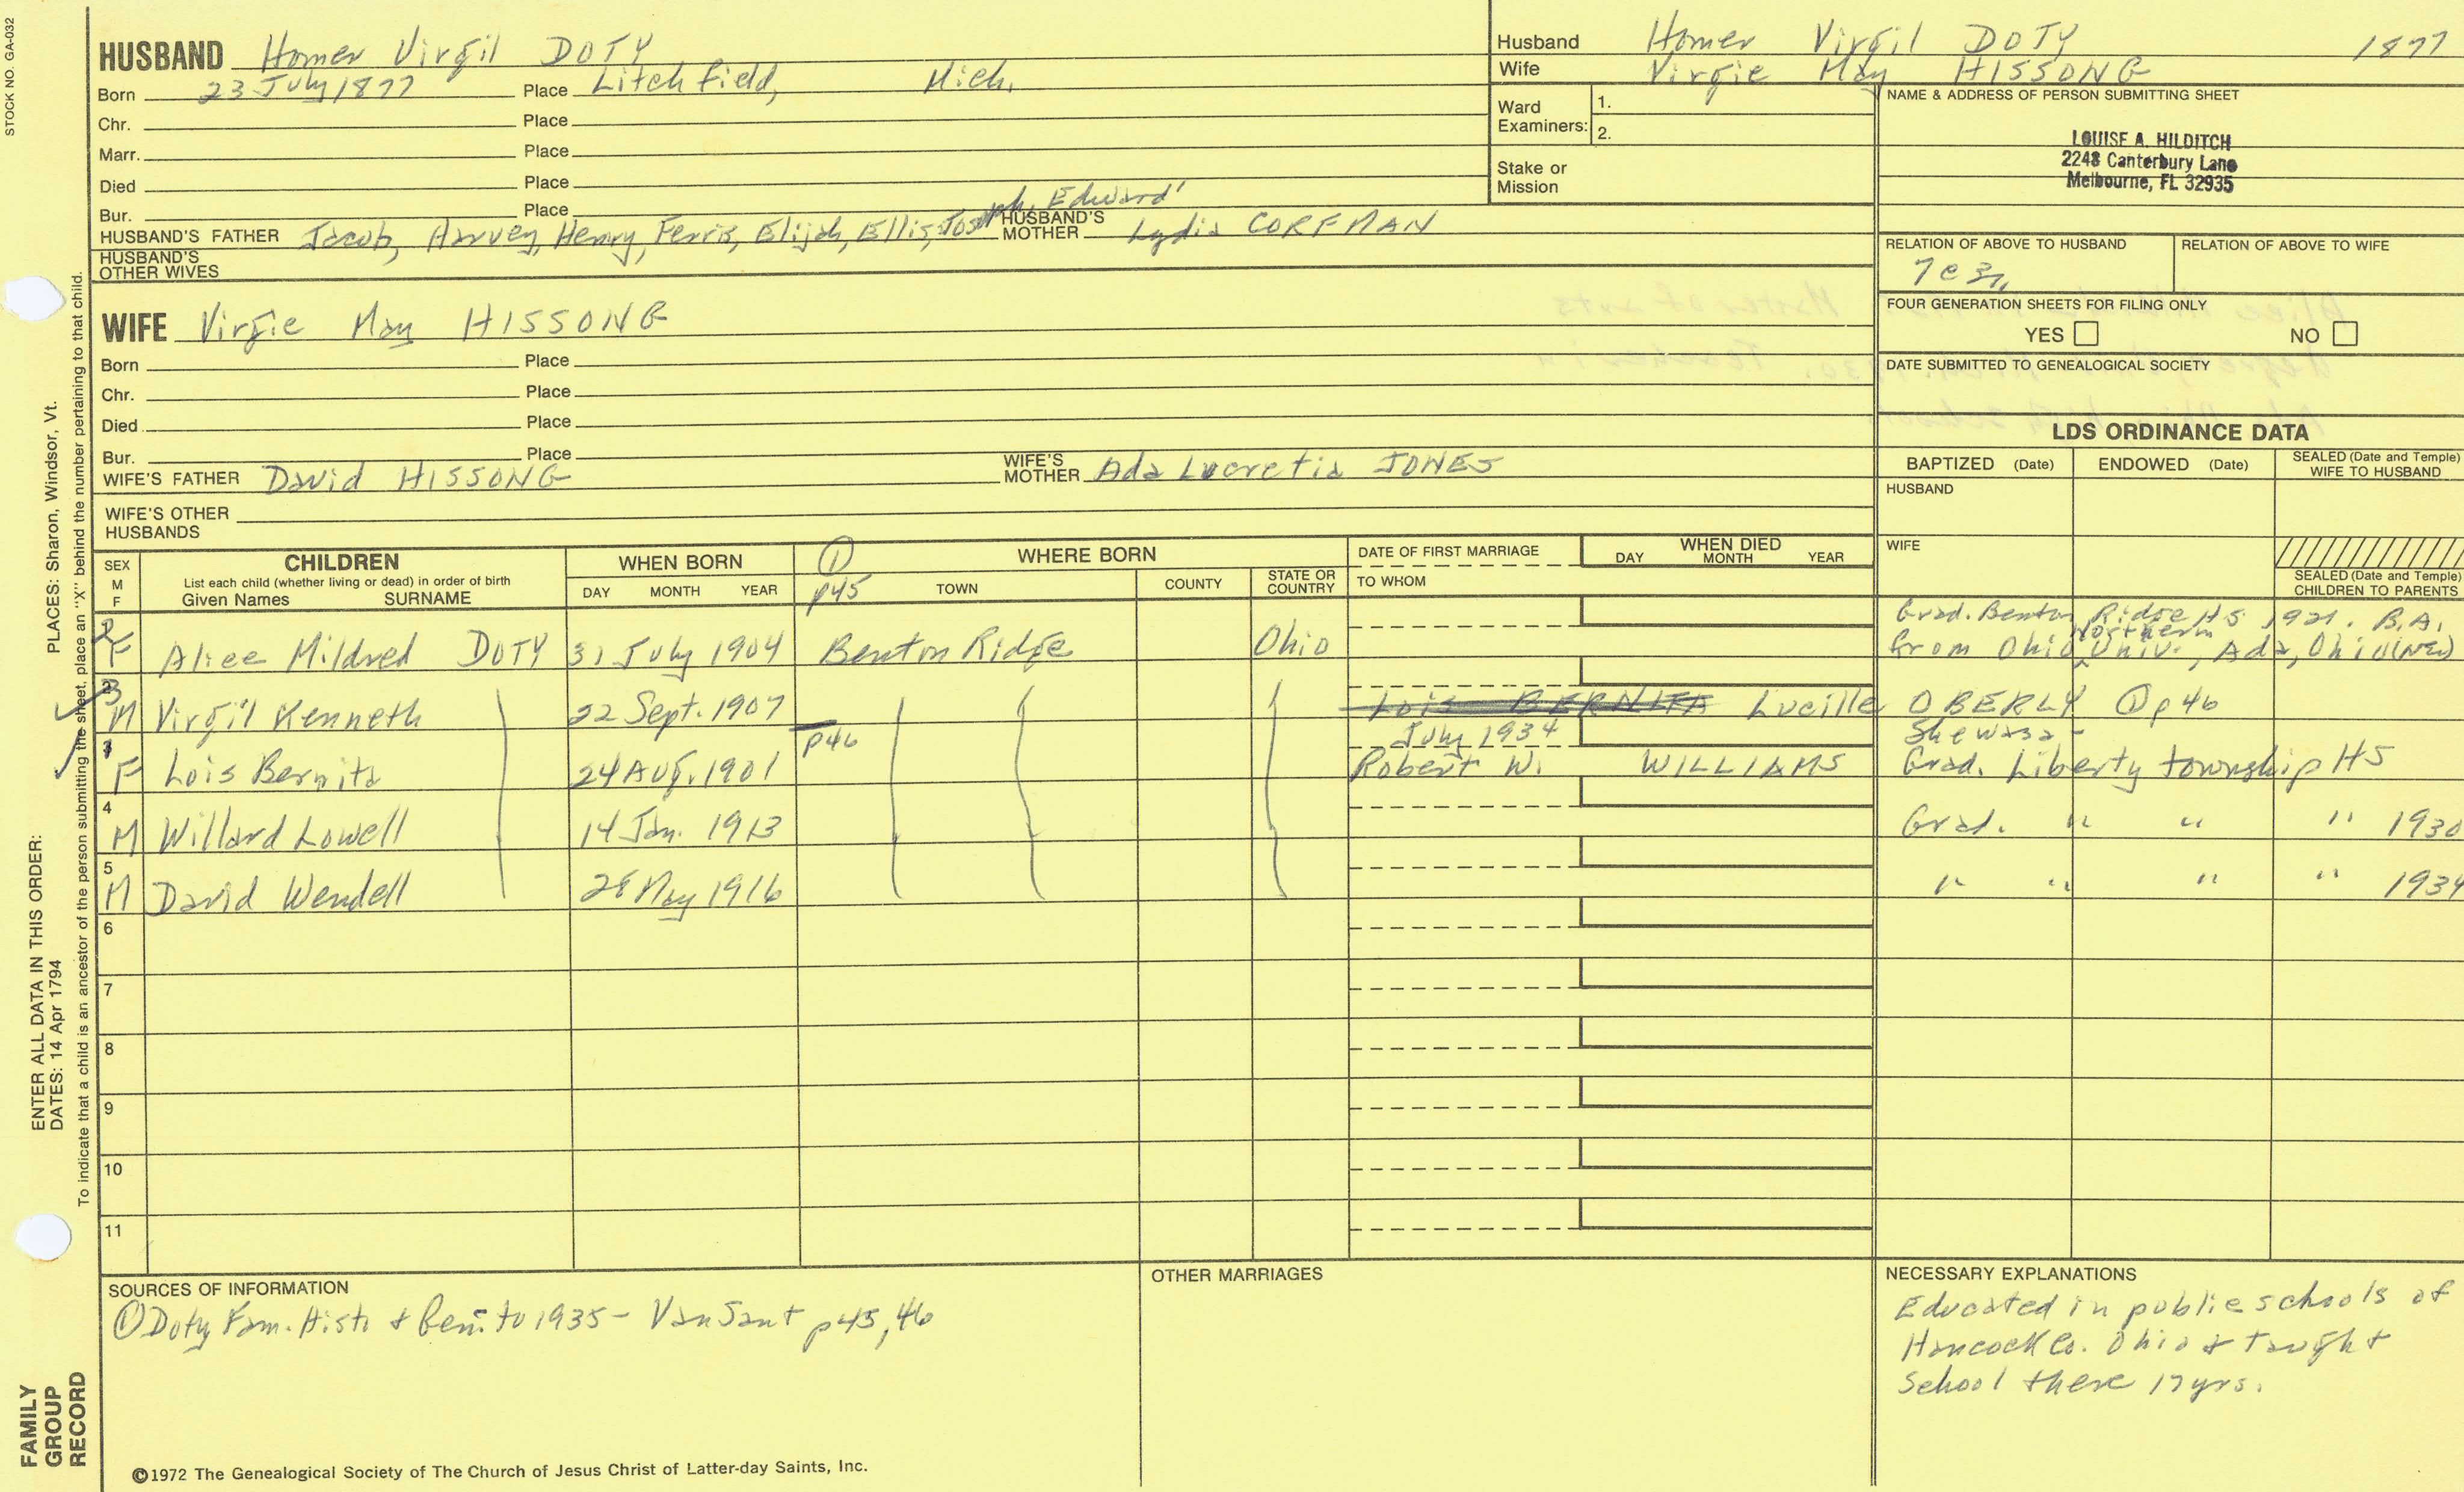 STOCK NO. GA-032
HUSBAND Homer Virgil DOTY
Born 23 July 1877 Place Litchfield, Mich.
Chr. Place
Marr. Place
Died Place
Bur. Place
HUSBAND'S FATHER Jacob, Harvey, Henry, Ferris, Elijah, Ellis, Joseph, Edward' HUSBAND'S MOTHER Lydia CORFMAN
HUSBAND'S OTHER WIVES
WIFE Virgie May HISSONG
Born Place
Chr. Place
Died Place
Bur. Place
WIFE'S FATHER David HISSONG WIFE'S MOTHER Ada Lucretia JONES
WIFE'S OTHER HUSBANDS
Husband Homer Virgil DOTY 1877
Wife Virgie May HISSONG
Ward Examiners: 1.
2.
Stake or Mission
NAME & ADDRESS OF PERSON SUBMITTING SHEET
LOUISE A. HILDITCH
2248 Canterbury Lane
Melbourne, FL 32935
RELATION OF ABOVE TO HUSBAND RELATION OF ABOVE TO WIFE
FOUR GENERATION SHEETS FOR FILING ONLY
YES NO
DATE SUBMITTED TO GENEALOGICAL SOCIETY
LDS ORDINANCE DATA
BAPTIZED (Date) ENDOWED (Date) SEALED (Date and Temple) WIFE TO HUSBAND
HUSBAND
WIFE
SEALED (Date and Temple) CHILDREN TO PARENTS
SEX M F CHILDREN WHEN BORN ① WHERE BORN DATE OF FIRST MARRIAGE WHEN DIED
List each child (whether living or dead) in order of birth
Given Names SURNAME DAY MONTH YEAR p45 TOWN COUNTY STATE OR COUNTRY TO WHOM DAY MONTH YEAR
2 F Alice Mildred DOTY 31 July 1904 Benton Ridge Ohio Grad. Benton Ridge HS 1921. B.A. from Ohio Northern Univ., Ada, Ohio
3 M Virgil Kenneth 22 Sept. 1907 Lois BERNITA Lucille OBERLY ① p46
1 F Lois Bernita 24 Aug. 1901 p46 July 1934 Robert W. WILLIAMS She was a - Grad. Liberty township HS
4 M Willard Lowell 14 Jan. 1913 Grad. " " " 1930
5 M David Wendell 28 May 1916 " " " " 1934
6
7
8
9
10
11
SOURCES OF INFORMATION
① Doty Fam. Hist. & Gen. to 1935 - Van Sant p45, 46
OTHER MARRIAGES
NECESSARY EXPLANATIONS
Educated in public schools of
Hancock Co. Ohio & taught
School there 17 yrs.
©1972 The Genealogical Society of The Church of Jesus Christ of Latter-day Saints, Inc.
ENTER ALL DATA IN THIS ORDER:
DATES: 14 Apr 1794
PLACES: Sharon, Windsor, Vt.
To indicate that a child is an ancestor of the person submitting the sheet, place an "X" behind the number pertaining to that child.
FAMILY
GROUP
RECORD